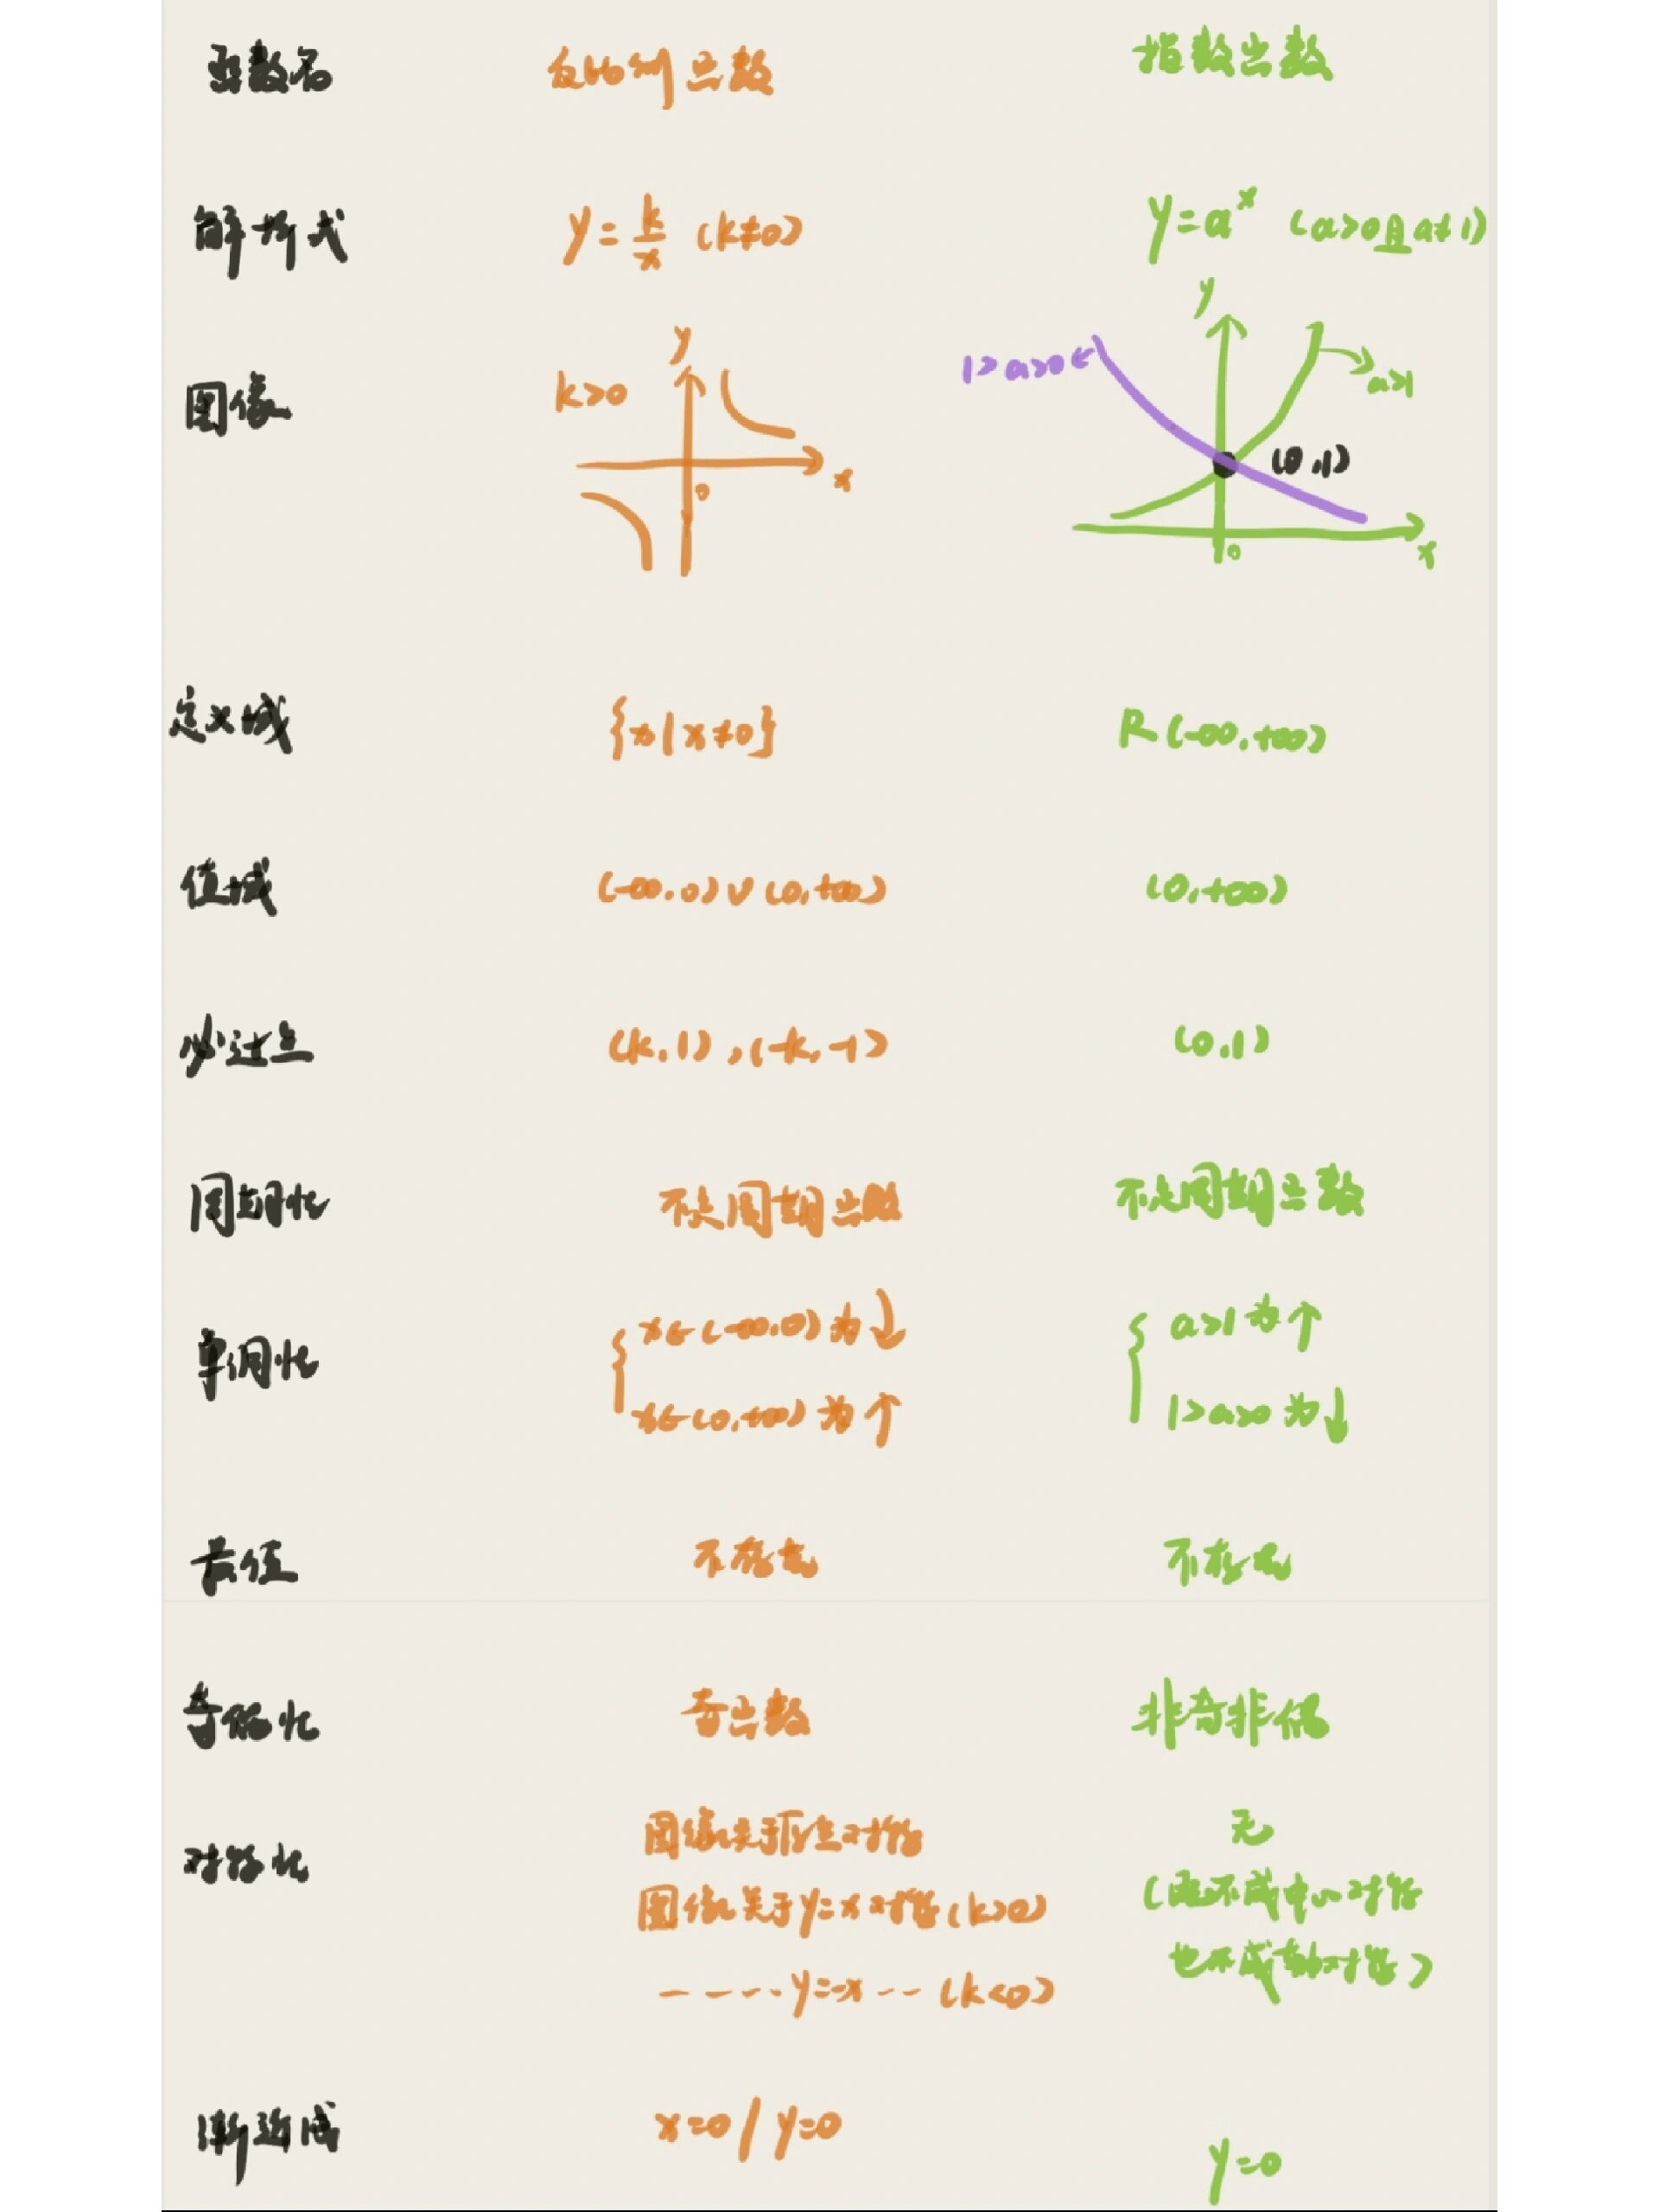 函数名 反比例函数 指数函数
解析式 y=k/x (k≠0) y=a^x (a>0且a≠1)
图像
k>0 y x 0
y 1>a>0 a>1 (0,1) x 0
定义域 {x|x≠0} R(-∞,+∞)
值域 (-∞,0)∪(0,+∞) (0,+∞)
必过点 (k,1),(-k,-1) (0,1)
周期性 不是周期函数 不是周期函数
单调性 { x∈(-∞,0)为↓ { a>1为↑
x∈(0,+∞)为↑ 1>a>0为↓
最值 不存在 不存在
奇偶性 奇函数 非奇非偶
对称性 图像关于原点对称 无
图像关于y=x对称(k>0) (既不成中心对称
----y=-x--(k<0) 也不成轴对称)
渐近线 x=0/y=0 y=0